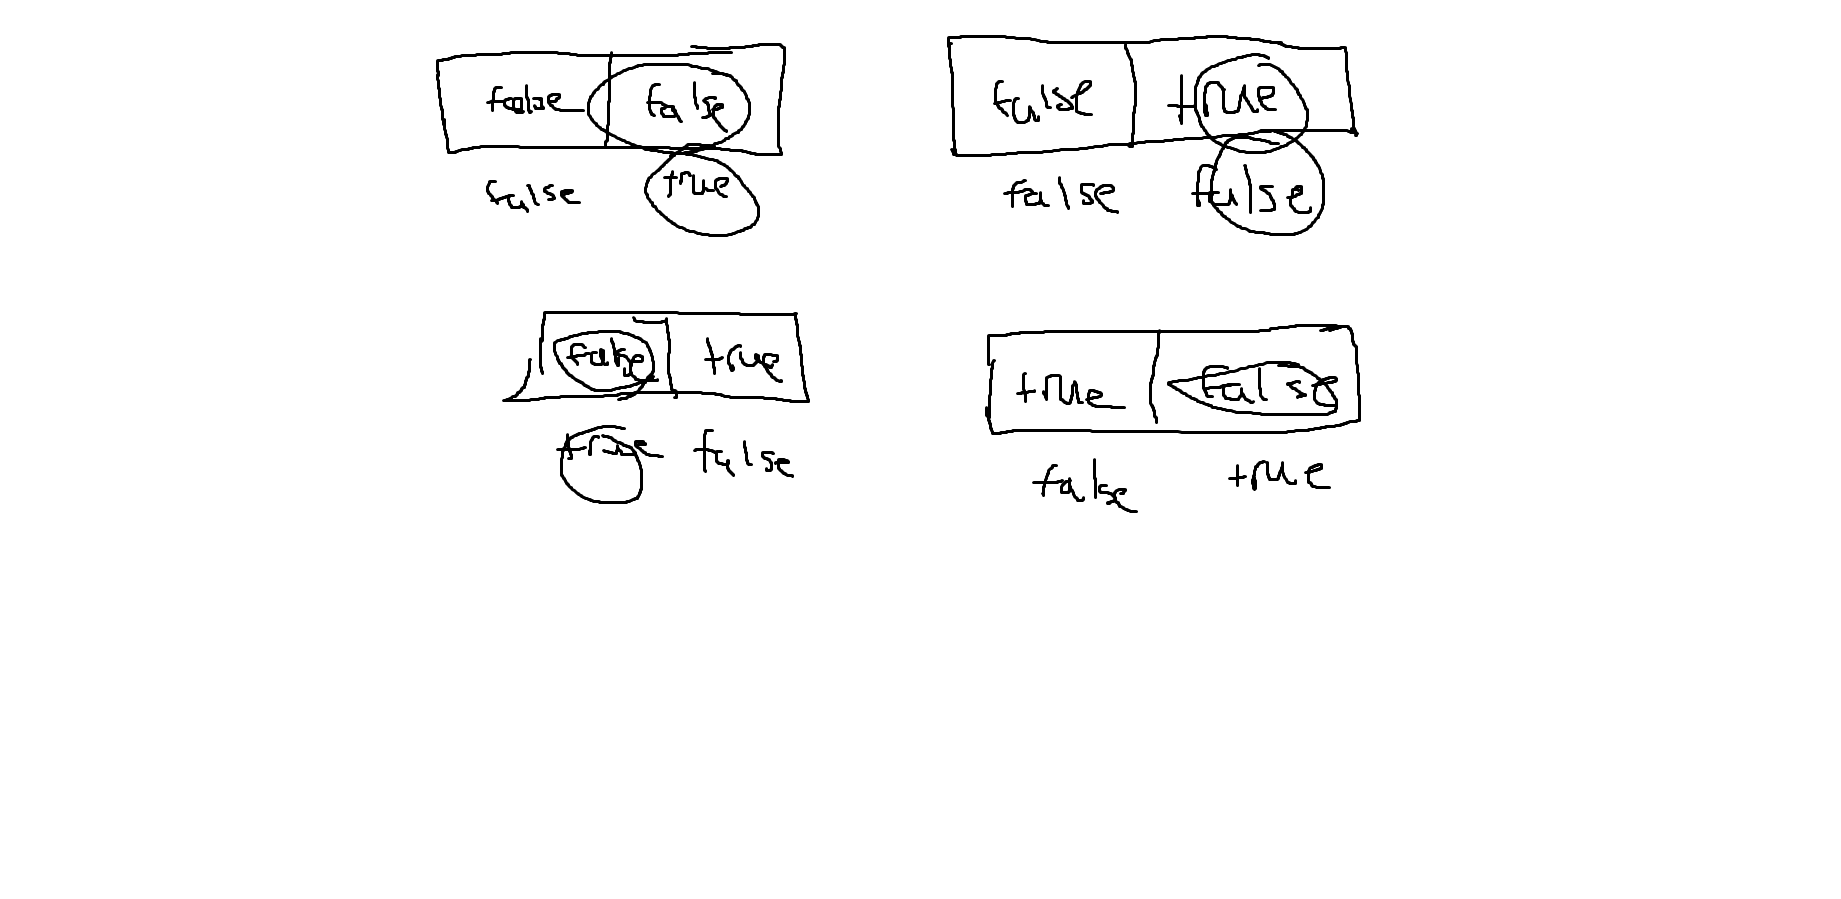 false false false true
false true false false
false true true false
true false false true